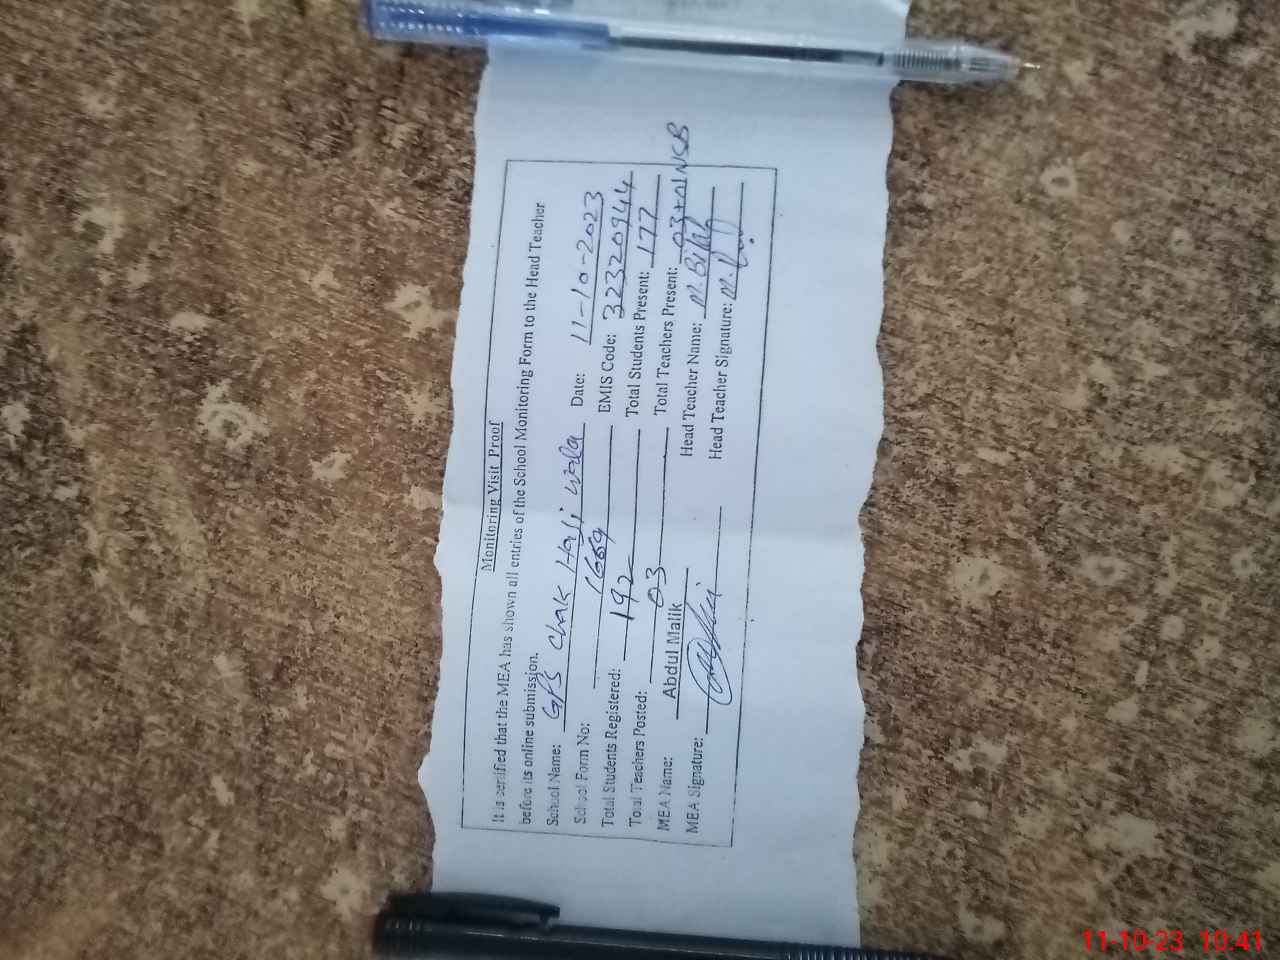 Monitoring Visit Proof
It is certified that the MEA has shown all entries of the School Monitoring Form to the Head Teacher
before its online submission.
School Name: GPS Chak Haji Wala Date: 11-10-2023
School Form No: 1669 EMIS Code: 32320944
Total Students Registered: 192 Total Students Present: 177
Total Teachers Posted: 03 Total Teachers Present: 03+01 NSB
MEA Name: Abdul Malik Head Teacher Name: M. Bilal
MEA Signature: Head Teacher Signature: M.
11-10-23 10:41